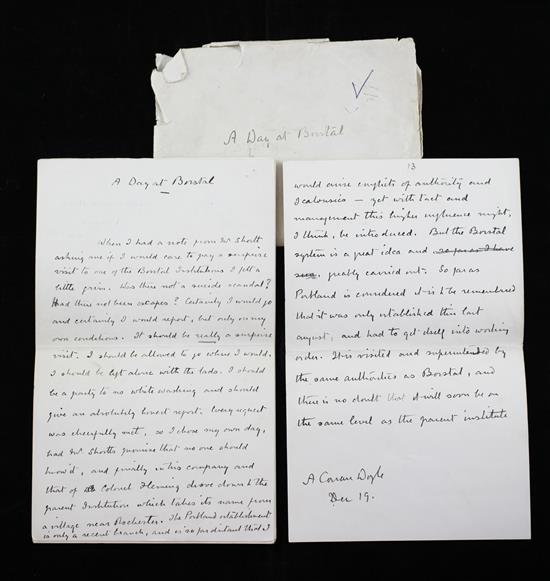 A Day at Borstal
A Day at Borstal
When I had a note from Mr Shortt
asking me if I would care to pay a surprise
visit to one of the Borstal Institutions I felt a
little grim. Was there not a suicide scandal?
Had there not been escapes? Certainly I would go
and certainly I would report, but only on my
own conditions. It should be really a surprise
visit. I should be allowed to go where I would.
I should be left alone with the lads. I should
be a party to no white washing and should
give an absolutely honest report. Every request
was cheerfully met, so I chose my own day,
had Mr Shortts promise that no one should
know it, and finally in his company and
that of Colonel Fleming drove down to the
parent Institution which takes its name from
a village near Rochester. The Portland establishment
is only a recent branch, and is so far distant that I
13
would arise conflicts of authority and
jealousies – yet with tact and
management this higher influence might,
I think, be introduced. But the Borstal
system is a great idea and so far as I have
seen, greatly carried out. So far as
Portland is considered it is to be remembered
that it was only established this last
august, and had to get itself into working
order. It is visited and superintended by
the same authorities as Borstal, and
there is no doubt that it will soon be on
the same level as the parent institute
A Conan Doyle
Dec 19.